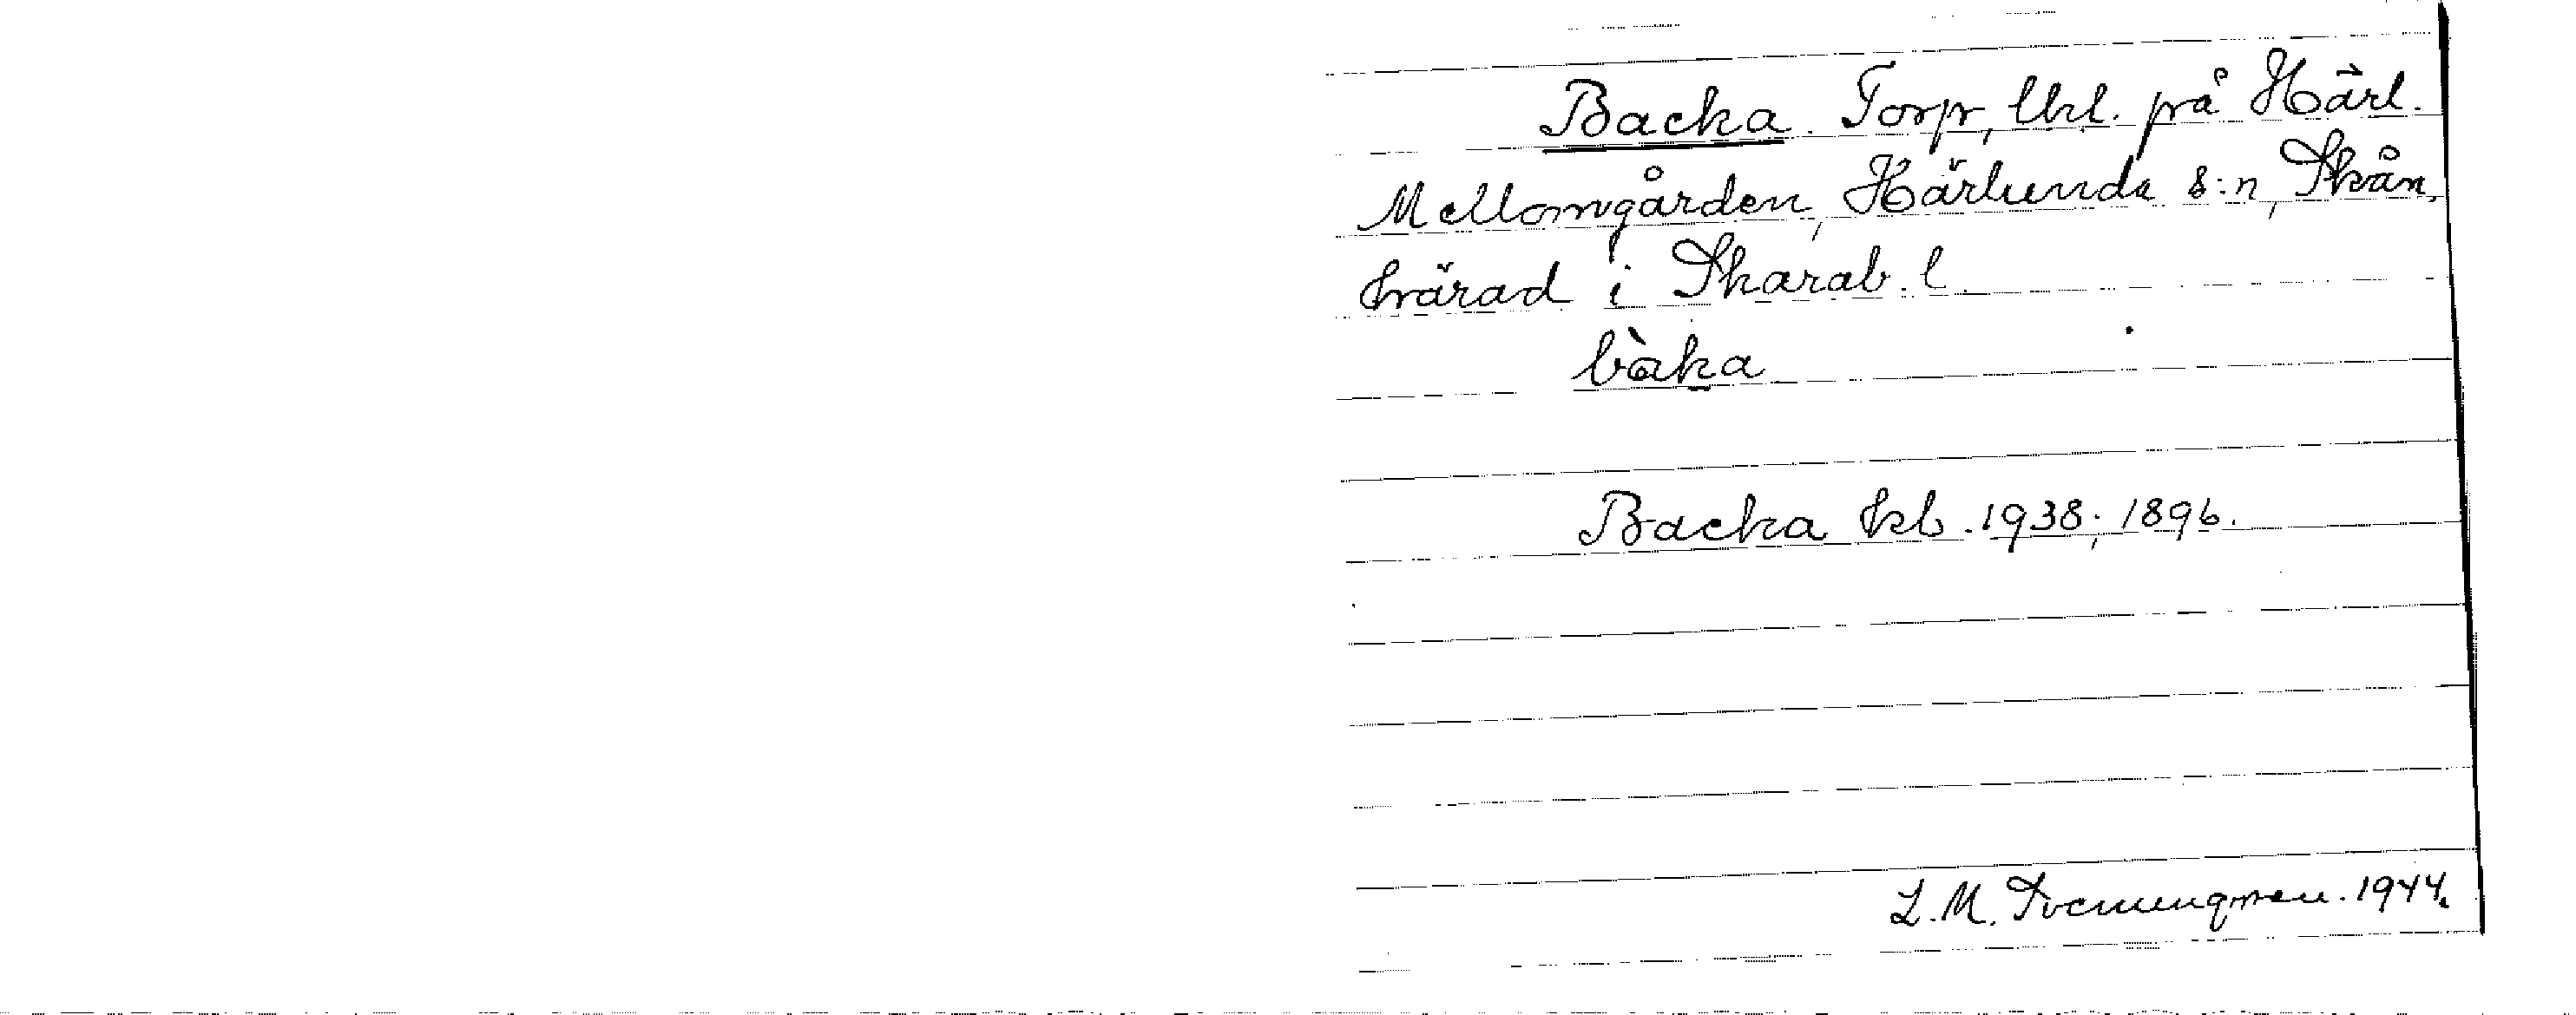 Backa. Torp, lht. på Härl.
Mellomgården, Härlunda s:n, Skån.
härad i Skarab. l.
bàka
Backa kb. 1938; 1896.
L. M. 1944.